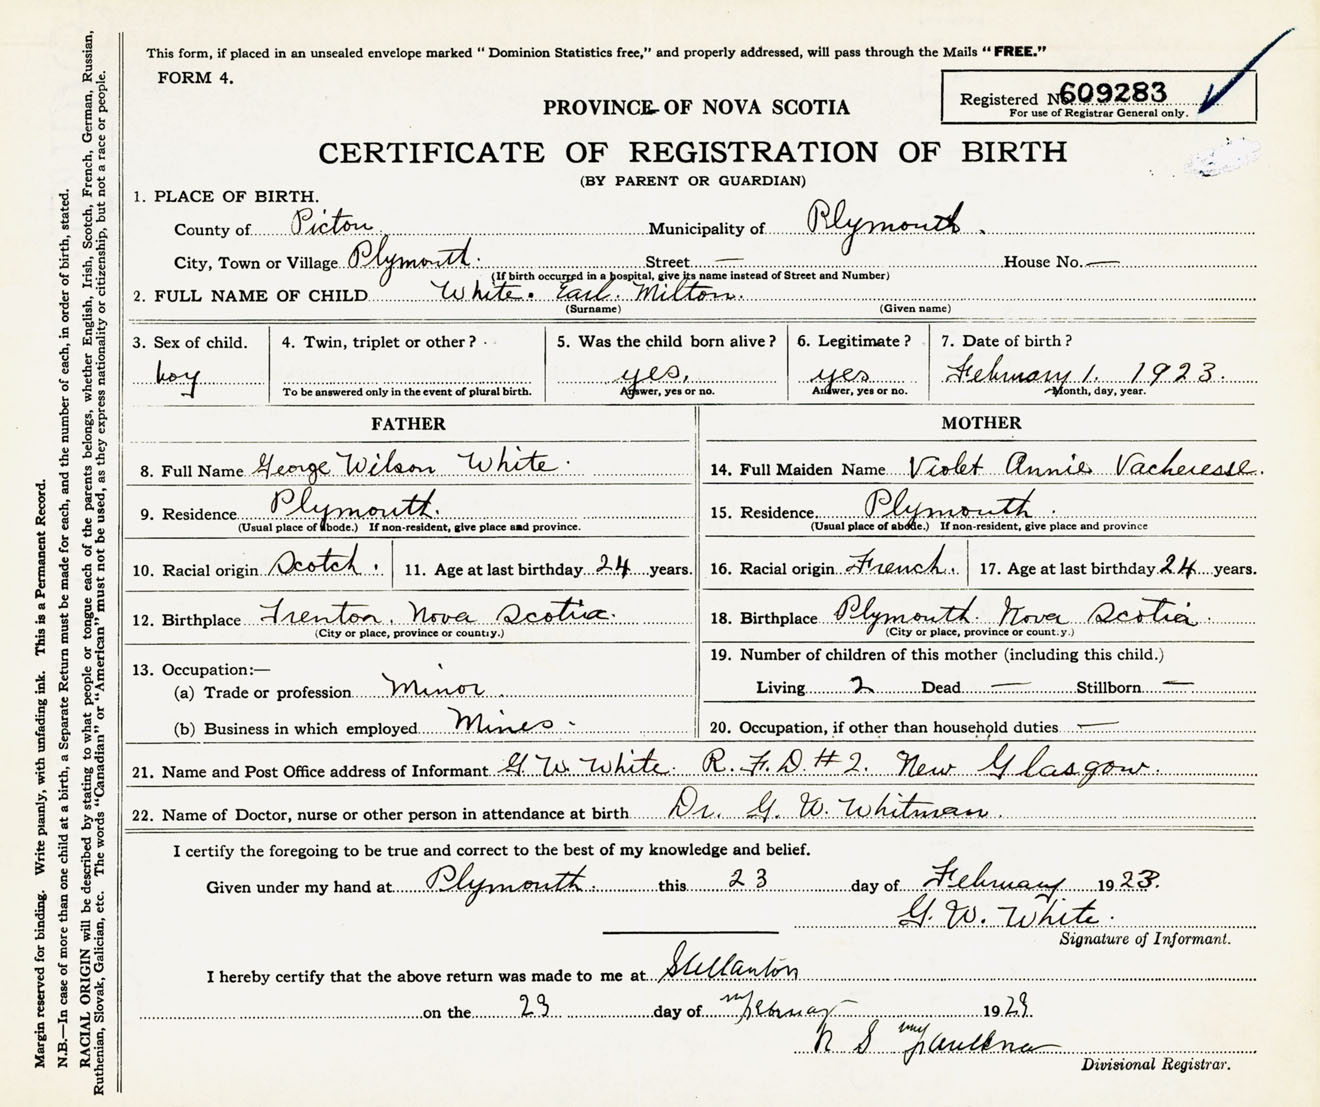 This form, if placed in an unsealed envelope marked "Dominion Statistics free," and properly addressed, will pass through the Mails "FREE."
FORM 4.
Registered No. 609283
For use of Registrar General only.
PROVINCE OF NOVA SCOTIA
CERTIFICATE OF REGISTRATION OF BIRTH
(BY PARENT OR GUARDIAN)
1. PLACE OF BIRTH.
County of Picton Municipality of Plymouth.
City, Town or Village Plymouth. Street — House No. —
(If birth occurred in a hospital, give its name instead of Street and Number)
2. FULL NAME OF CHILD White. Earl. Milton.
(Surname) (Given name)
3. Sex of child. 4. Twin, triplet or other? 5. Was the child born alive? 6. Legitimate? 7. Date of birth?
boy yes, yes February 1. 1923.
To be answered only in the event of plural birth. Answer, yes or no. Answer, yes or no. Month, day, year.
FATHER MOTHER
8. Full Name George Wilson White. 14. Full Maiden Name Violet Annie Vacheresse.
9. Residence Plymouth. 15. Residence. Plymouth.
(Usual place of abode.) If non-resident, give place and province. (Usual place of abode.) If non-resident, give place and province
10. Racial origin Scotch. 11. Age at last birthday 24 years. 16. Racial origin French. 17. Age at last birthday 24 years.
12. Birthplace Trenton. Nova Scotia. 18. Birthplace Plymouth. Nova Scotia.
(City or place, province or country.) (City or place, province or country.)
13. Occupation:— 19. Number of children of this mother (including this child.)
(a) Trade or profession Minor. Living 2 Dead — Stillborn —
(b) Business in which employed Mines. 20. Occupation, if other than household duties —
21. Name and Post Office address of Informant G. W. White. R. F. D. #2. New Glasgow.
22. Name of Doctor, nurse or other person in attendance at birth Dr. G. W. Whitman.
I certify the foregoing to be true and correct to the best of my knowledge and belief.
Given under my hand at Plymouth. this 23 day of February 1923.
G. W. White.
Signature of Informant.
I hereby certify that the above return was made to me at Stellarton
on the 23 day of February 1923.
Divisional Registrar.
Margin reserved for binding. Write plainly, with unfading ink. This is a Permanent Record.
N.B.—In case of more than one child at a birth, a Separate Return must be made for each, and the number of each, in order of birth, stated.
RACIAL ORIGIN will be described by stating to what people or tongue each of the parents belongs, whether English, Irish, Scotch, French, German, Russian,
Ruthenian, Slovak, Galician, etc. The words "Canadian" or "American" must not be used, as they express nationality or citizenship, but not a race or people.